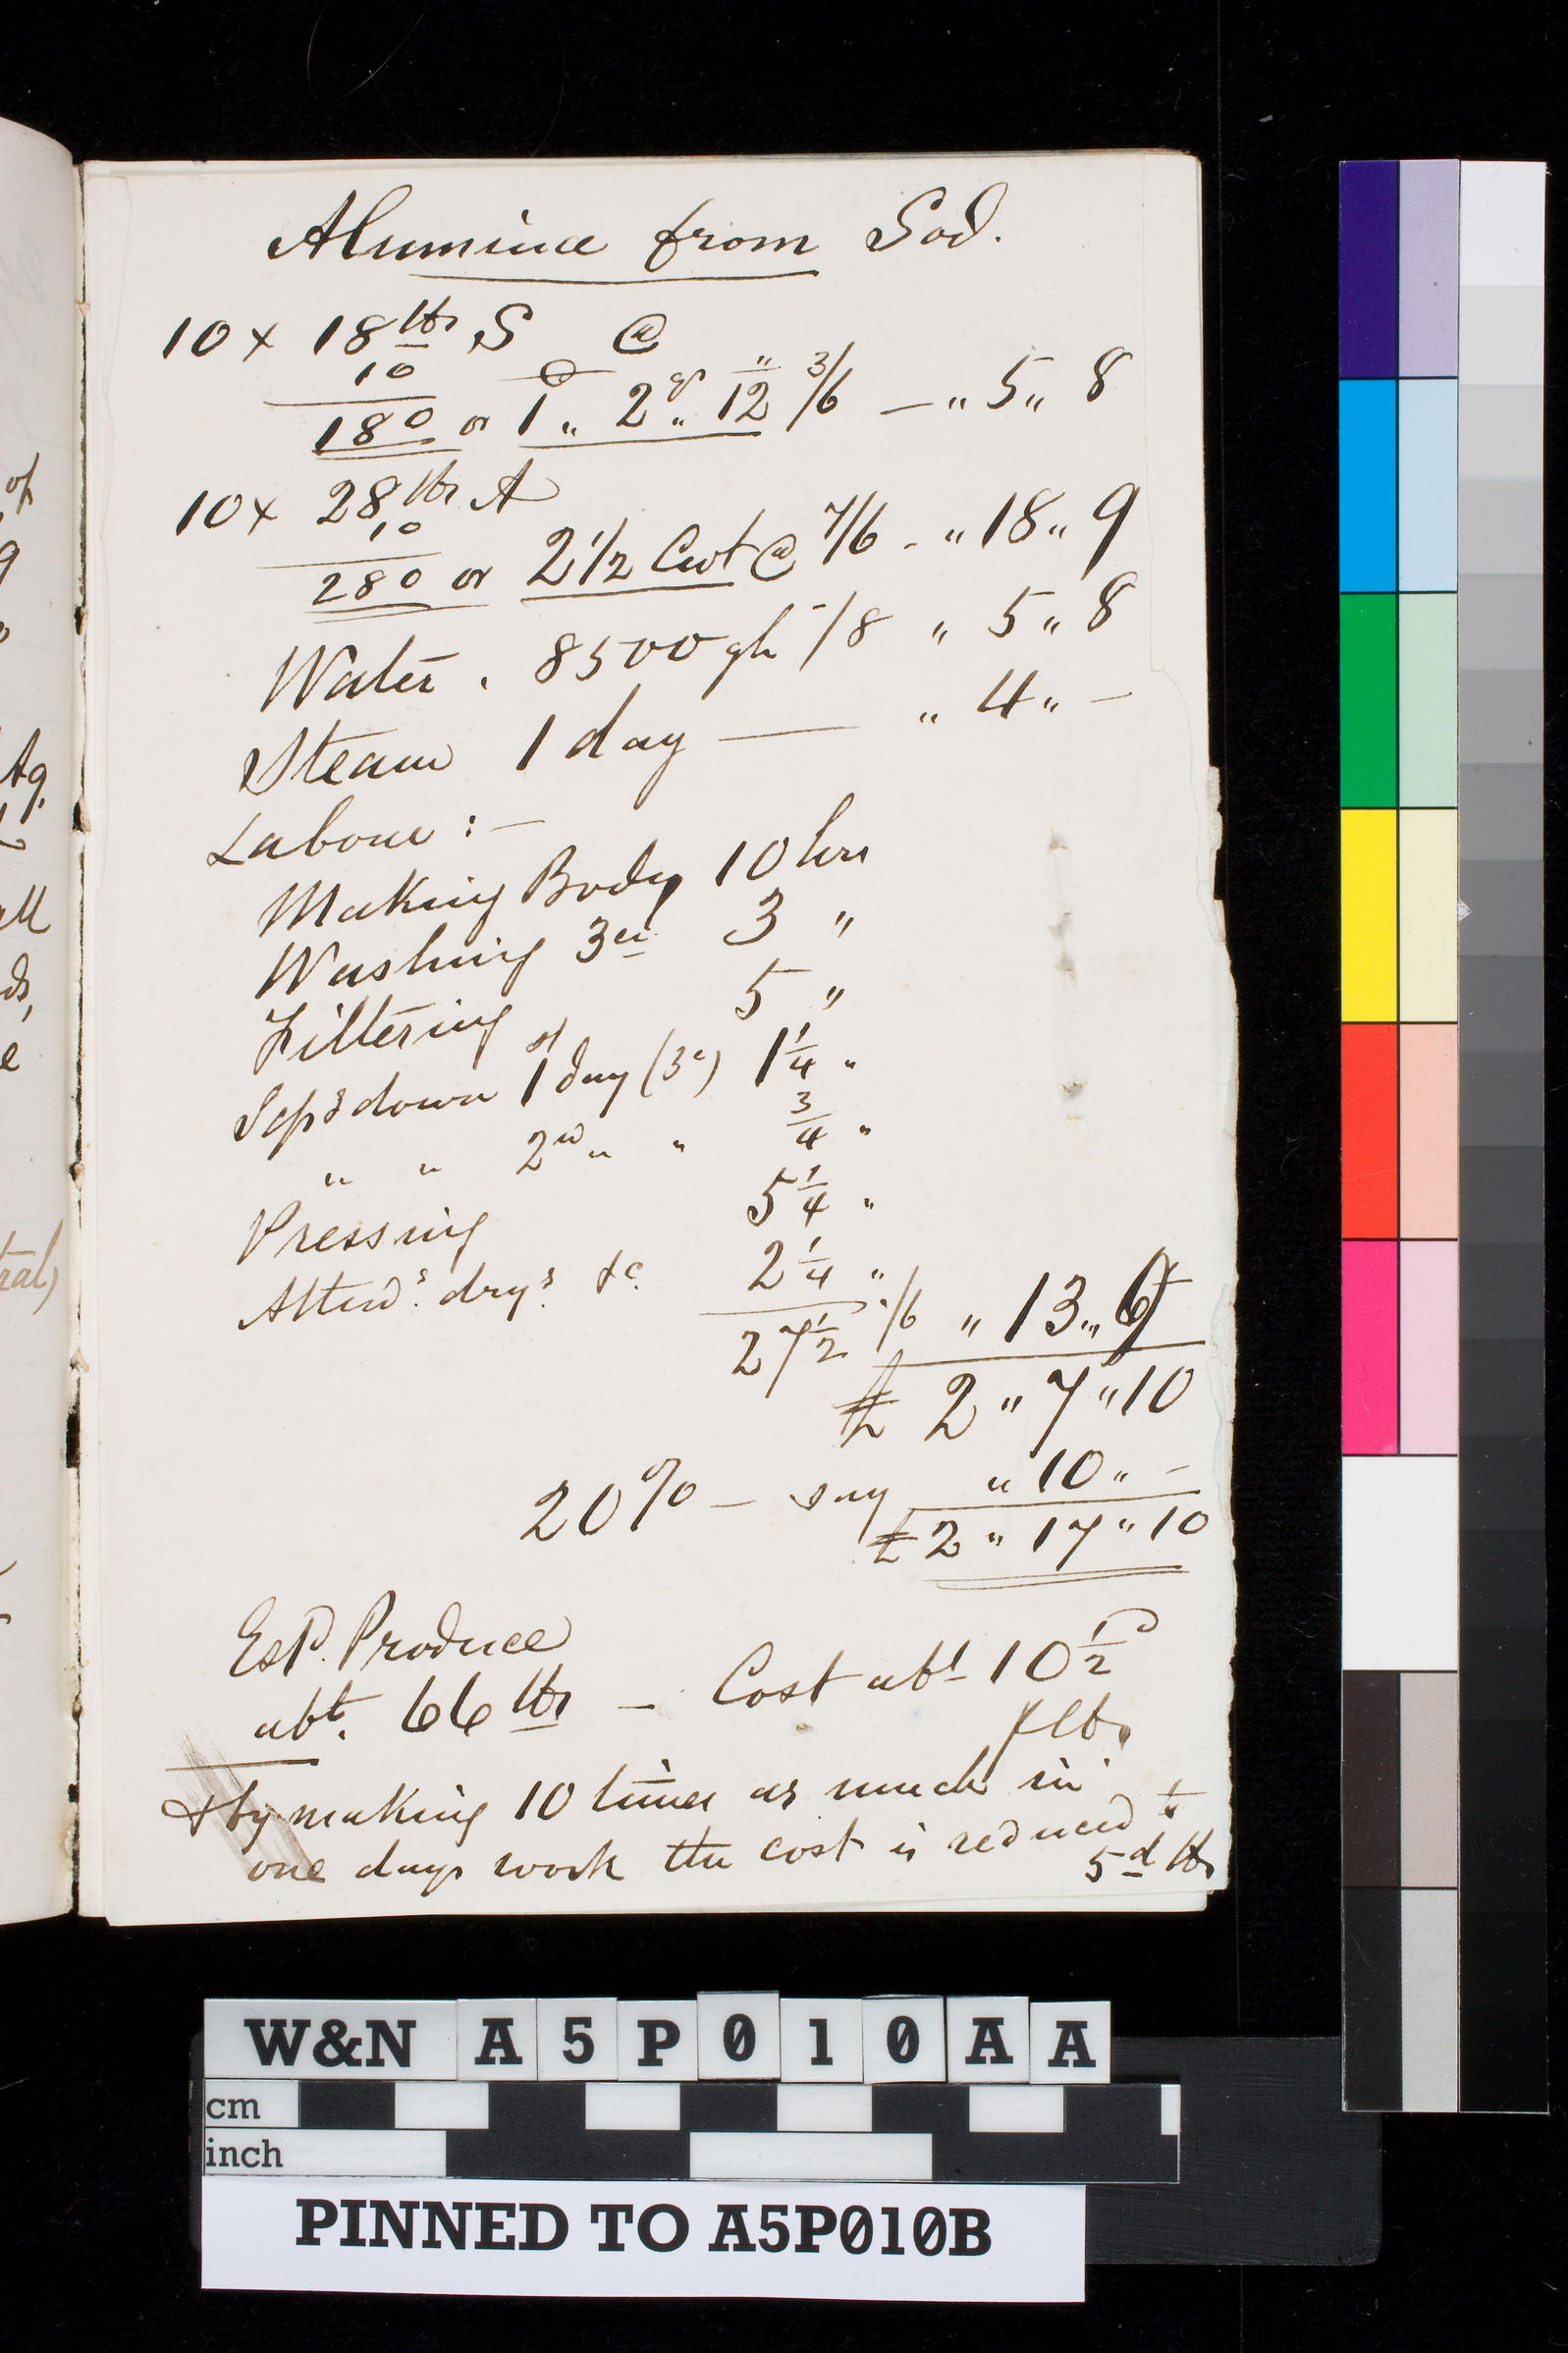 Alumina from Sod.
10 x 18 lbs S @
10
180 or 1 „ 2 qr „ 12 3/6 — „ 5 „ 8
10 x 28 lbs A
10
280 or 2 1/2 Cwt @ 7/6 - „ 18 „ 9
Water . 8500 gls -/8 „ 5 „ 8
Steam 1 day — „ 4 „ —
Labour :—
Making Body 10 hrs
Washing 3 3 „
Filtering 5 „
down 1st day (3c) 1 1/4 „
„ „ 2nd „ „ 3/4 „
Pressing 5 1/4 „
Attends. drys. &c. 2 1/4 „
27 1/2 -/6 „ 13 „ 9
£ 2 „ 7 „ 10
20% — say „ 10 „ —
£ 2 „ 17 „ 10
Estd. Produce
abt. 66 lbs — Cost abt 10 1/2 d
p lb.
& by making 10 times as much in
one days work the cost is reduced to
5d lb
of
g
Ag.
ds,
e
tral)
W&N A 5 P 0 1 0 A A
cm
inch
PINNED TO A5P010B